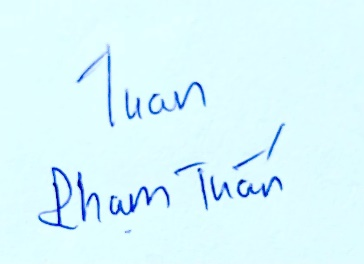 Tuan
Phạm Tuấn